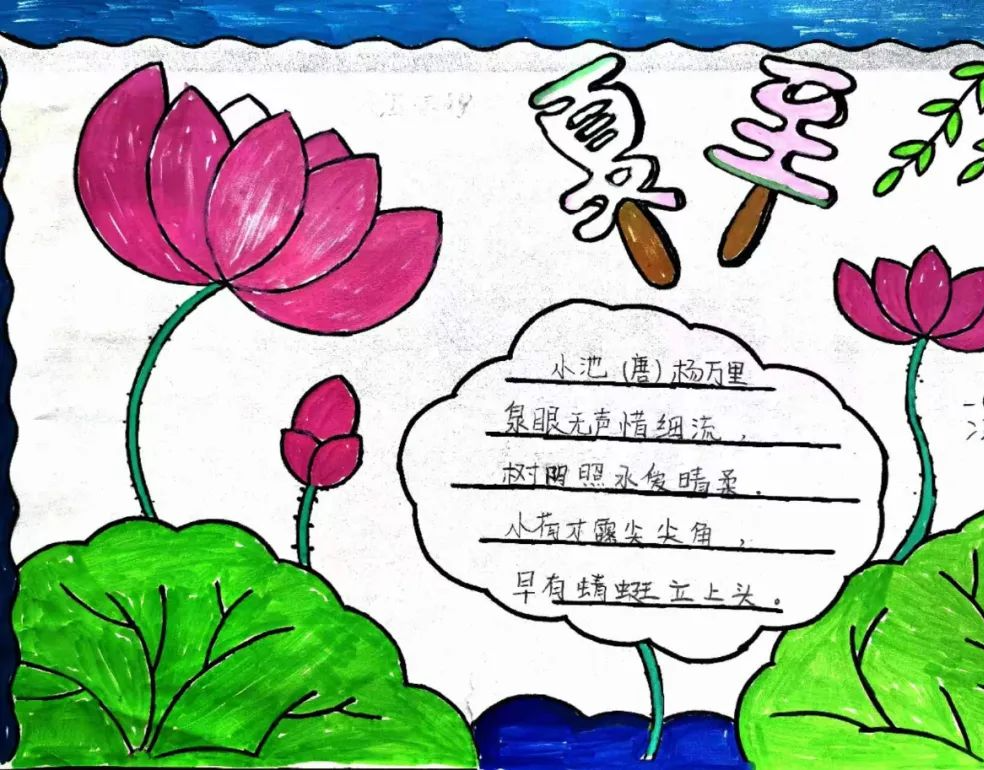 夏至
小池 (唐) 杨万里
泉眼无声惜细流，
树阴照水爱晴柔.
小荷才露尖尖角，
早有蜻蜓立上头。